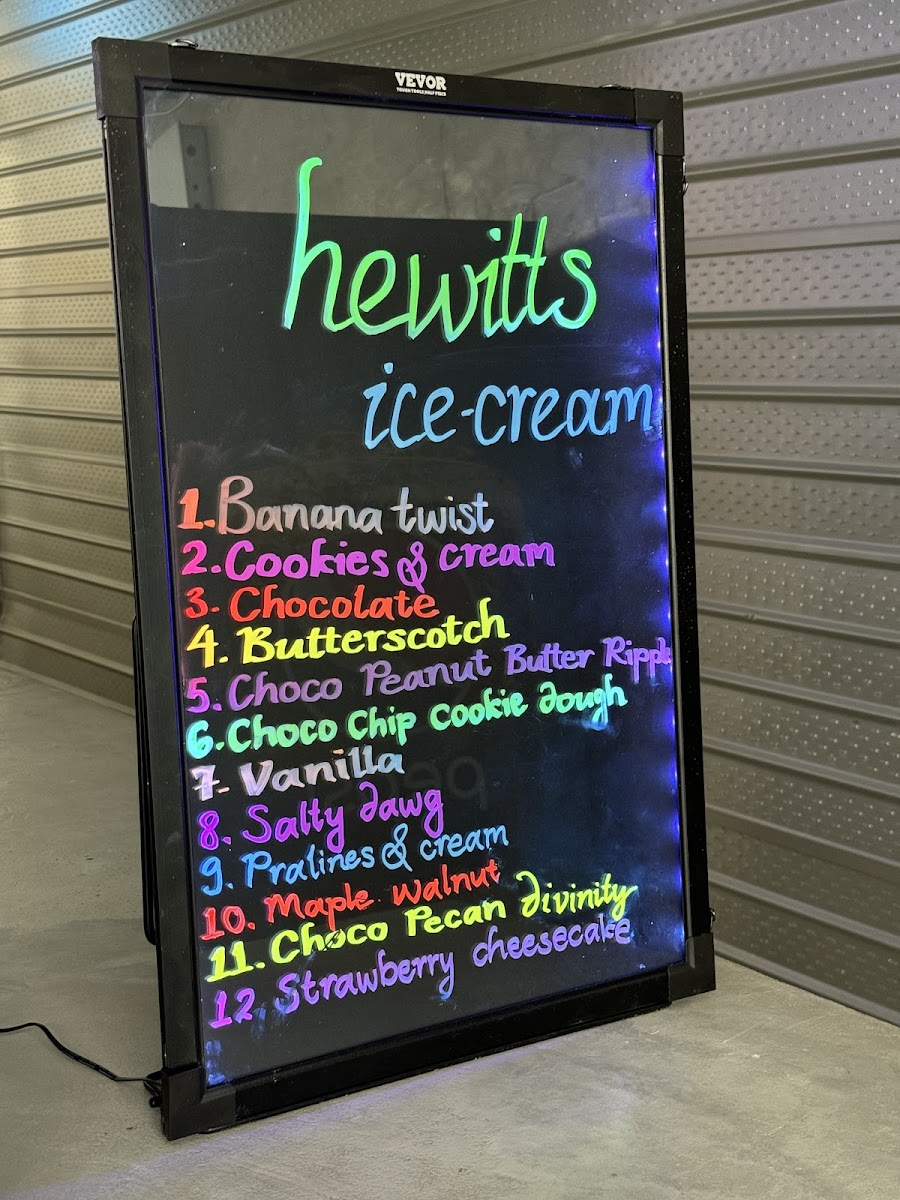 VEVOR
TOUGH TOOLS, HALF PRICE
hewitts
ice-cream
1. Banana twist
2. Cookies & cream
3. Chocolate
4. Butterscotch
5. Choco Peanut Butter Ripple
6. Choco Chip cookie dough
7. Vanilla
8. Salty dawg
9. Pralines & cream
10. Maple walnut
11. Choco Pecan divinity
12. Strawberry cheesecake